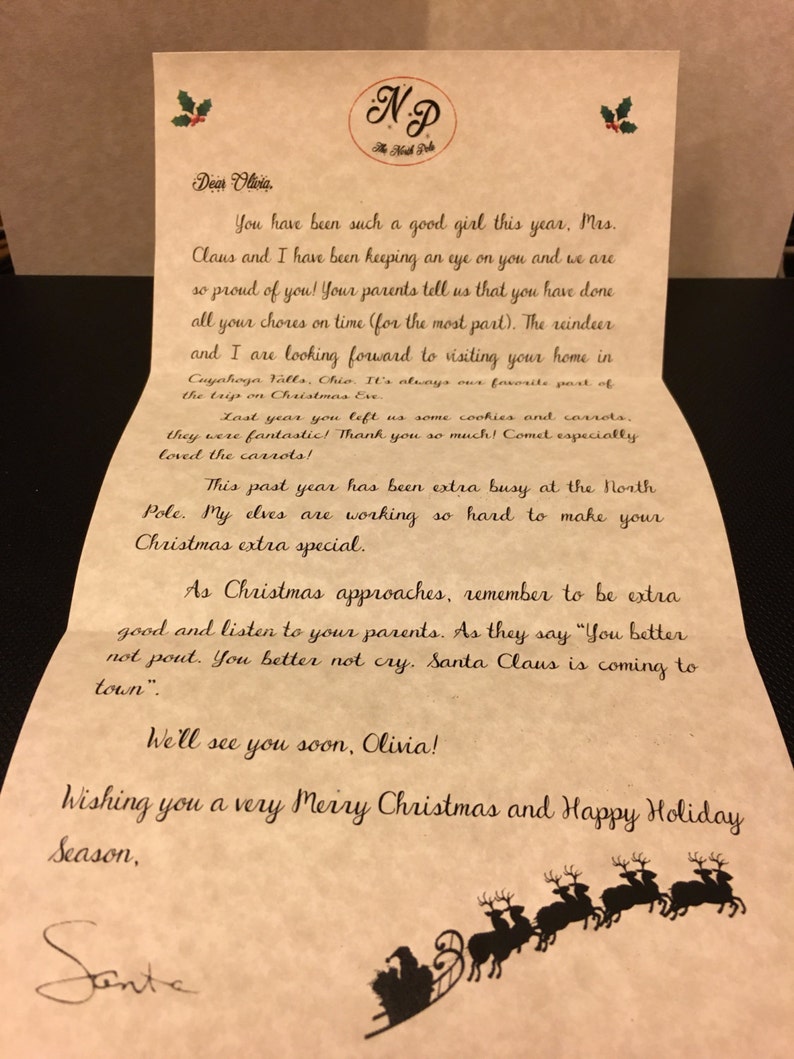 NP
The North Pole
Dear Olivia,
You have been such a good girl this year, Mrs.
Claus and I have been keeping an eye on you and we are
so proud of you! Your parents tell us that you have done
all your chores on time (for the most part). The reindeer
and I are looking forward to visiting your home in
Cuyahoga Falls, Ohio. It's always our favorite part of
the trip on Christmas Eve.
Last year you left us some cookies and carrots,
they were fantastic! Thank you so much! Comet especially
loved the carrots!
This past year has been extra busy at the North
Pole. My elves are working so hard to make your
Christmas extra special.
As Christmas approaches, remember to be extra
good and listen to your parents. As they say “You better
not pout. You better not cry. Santa Claus is coming to
town”.
We'll see you soon, Olivia!
Wishing you a very Merry Christmas and Happy Holiday
Season,
Santa